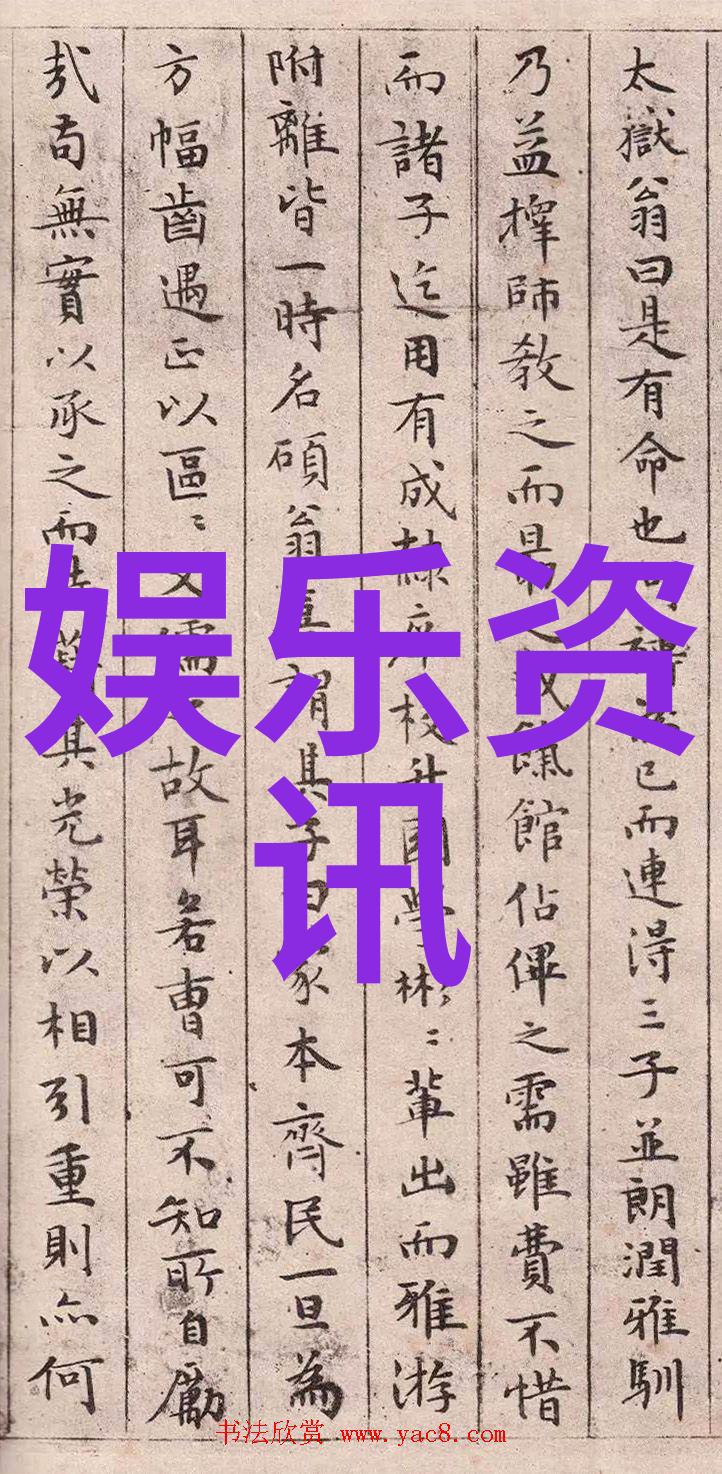 太獄翁曰是有命也
已而連得三子並朗潤雅馴
乃益擇師教之而
餼館佔俾之需雖費不惜
而諸子迄用有成隸庠校升國學彬﹕輩出而雅游
附離皆一時名碩翁
謂其子曰
家本齊民一旦為
方幅齒遇正以區﹕文儒
故耳若曹可不知所自勵
哉苟無實以承之而
其光榮以相引重則亦何
娱乐资
讯
书法欣赏 www.yac8.com